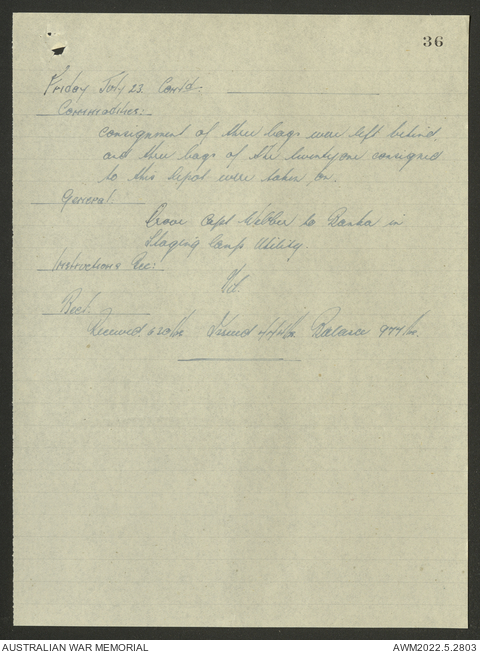 36
Friday July 23. Cont'd.
Commodities:-
consignment of three bags were left behind
and three bags of the twentyone consigned
to this depot were taken on.
General
Drove Capt Webber to Banka in
Staging Camp Utility.
Instructions Rec:-
Nil.
Beef.
Received 520lbs Issued Balance
AUSTRALIAN WAR MEMORIAL
AWM2022.5.2803